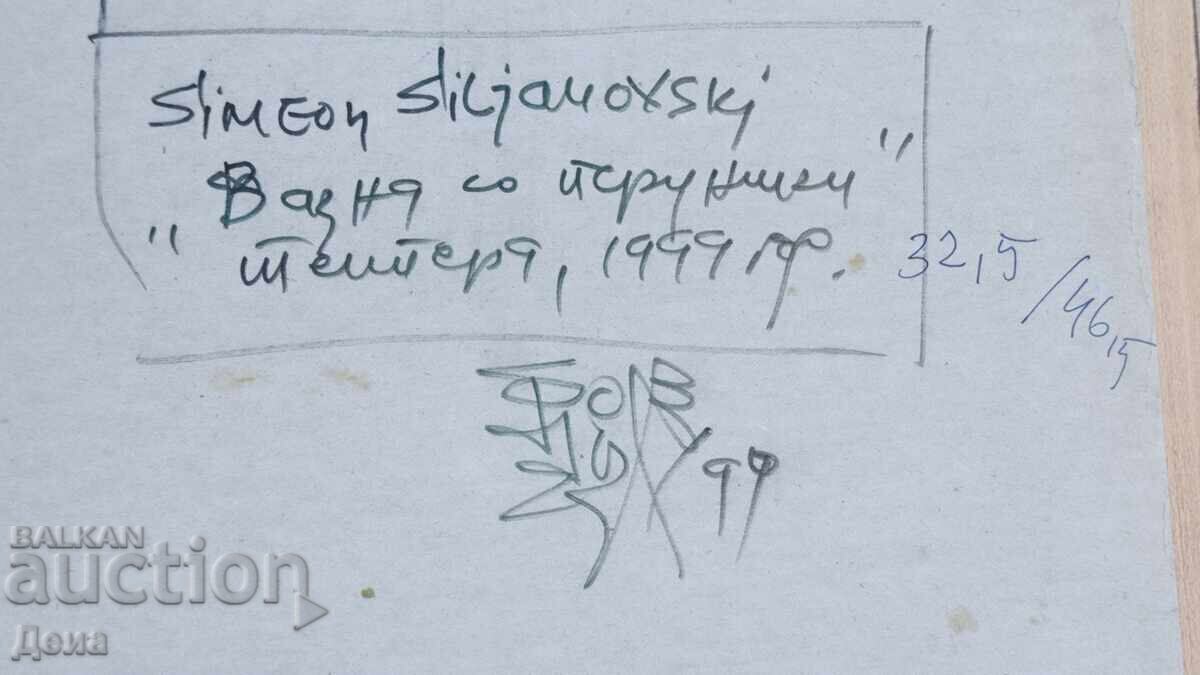 Simeon Siljanovski
Вазна со перуники"
" темпера, 1999 год.
32,5/46,5
99
BALKAN
auction
Деиа